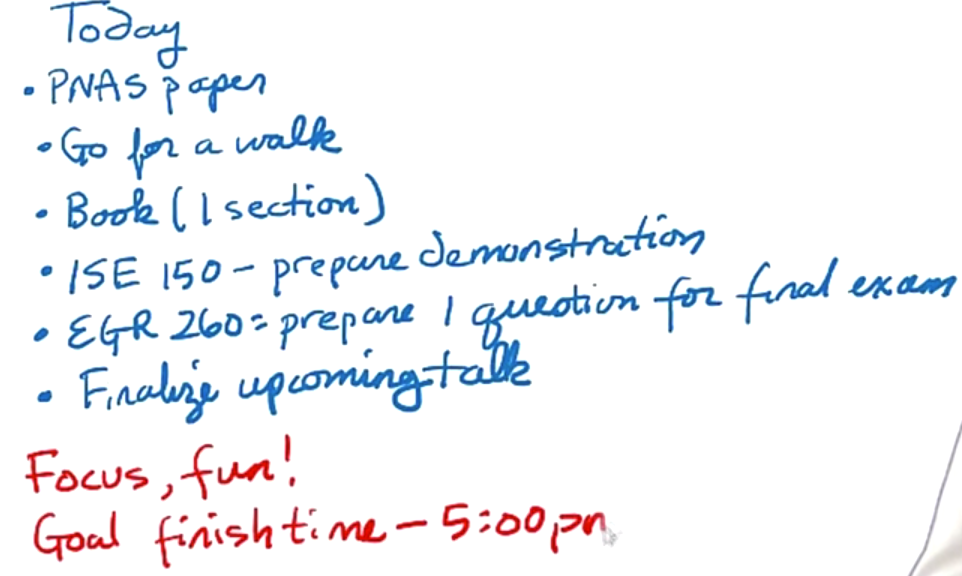 Today
• PNAS paper
• Go for a walk
• Book (1 section)
• ISE 150 - prepare demonstration
• EGR 260 = prepare 1 question for final exam
• Finalize upcoming talk
Focus, fun!
Goal finish time - 5:00 pm